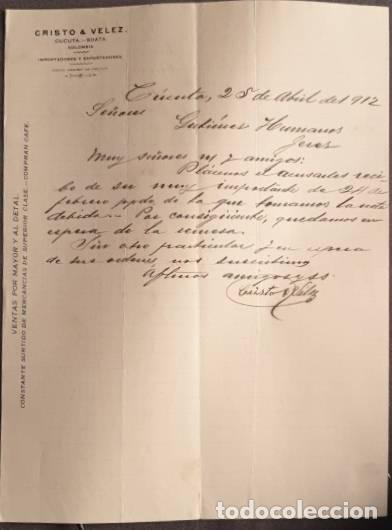 CRISTO & VELEZ.
CUCUTA.—BOATA.
COLOMBIA
IMPORTADORES Y EXPORTADORES.
VENTAS POR MAYOR Y AL DETAL
CONSTANTE SURTIDO DE MERCANCIAS DE SUPERIOR CLASE.—COMPRAN CAFE.
Cúcuta, 25 de Abril de 1912
Señores
Gutiérrez Hermanos
Jerez
Muy señores n/ y amigos:
Plácenos el acusarles reci
bo de su muy importante de 24 de
febrero ppdo de la que tomamos la nota
debida.— Por consiguiente, quedamos en
espera de la remesa.
Sin otro particular y en espera
de sus ordenes nos suscribimos
Afmos amigos y ss.
Cristo & Vélez
todocoleccion.net